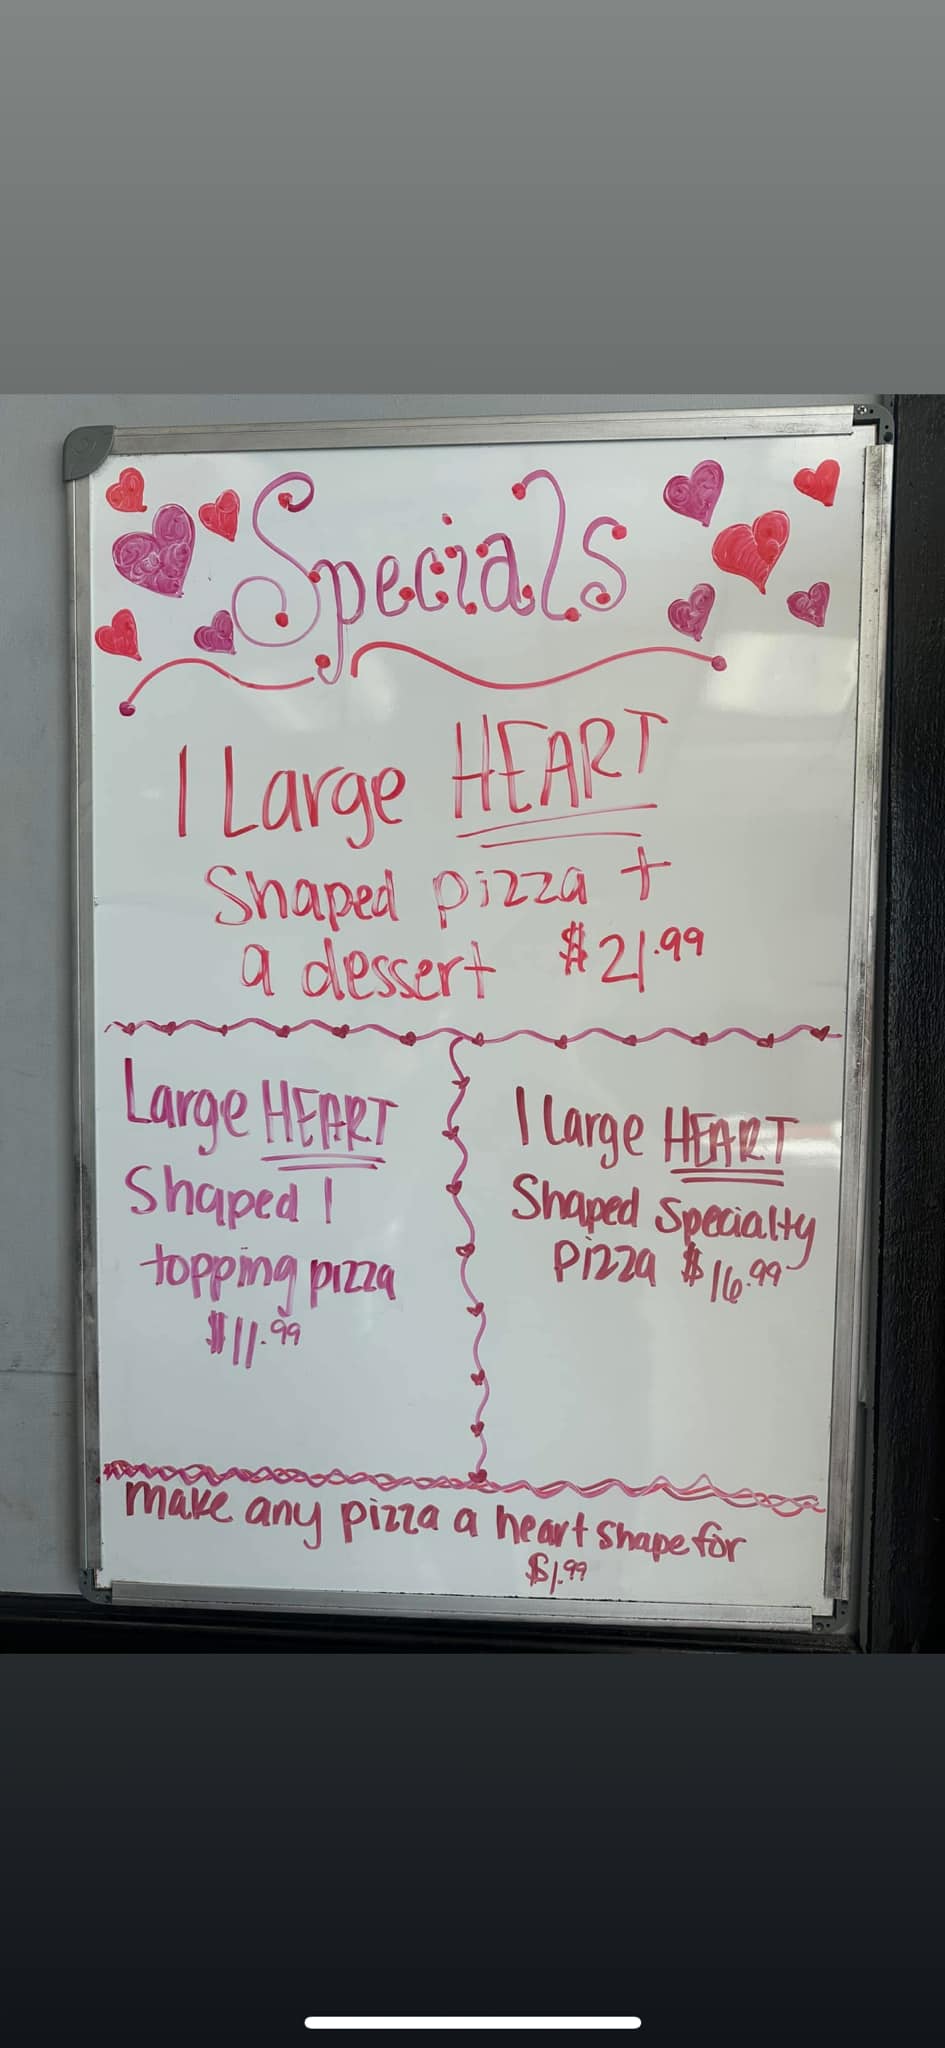 Specials
1 Large HEART
Shaped pizza +
a dessert $21.99
Large HEART
Shaped 1
topping pizza
$11.99
1 Large HEART
Shaped Specialty
Pizza $16.99
make any pizza a heart shape for
$1.99